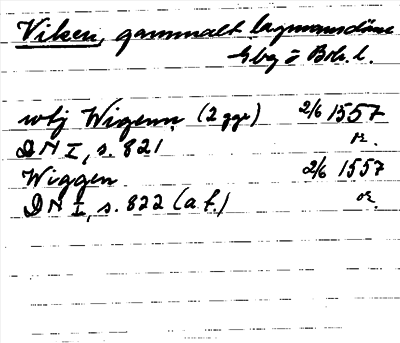 Viken, gammalt lagmansdöme
Gbg o Boh. l.
wtj Wigenn (2 ggr) 2/6 1557
DN I, s. 821 or.
Wiggen 2/6 1557
DN I, s. 822 (a. f.) or.